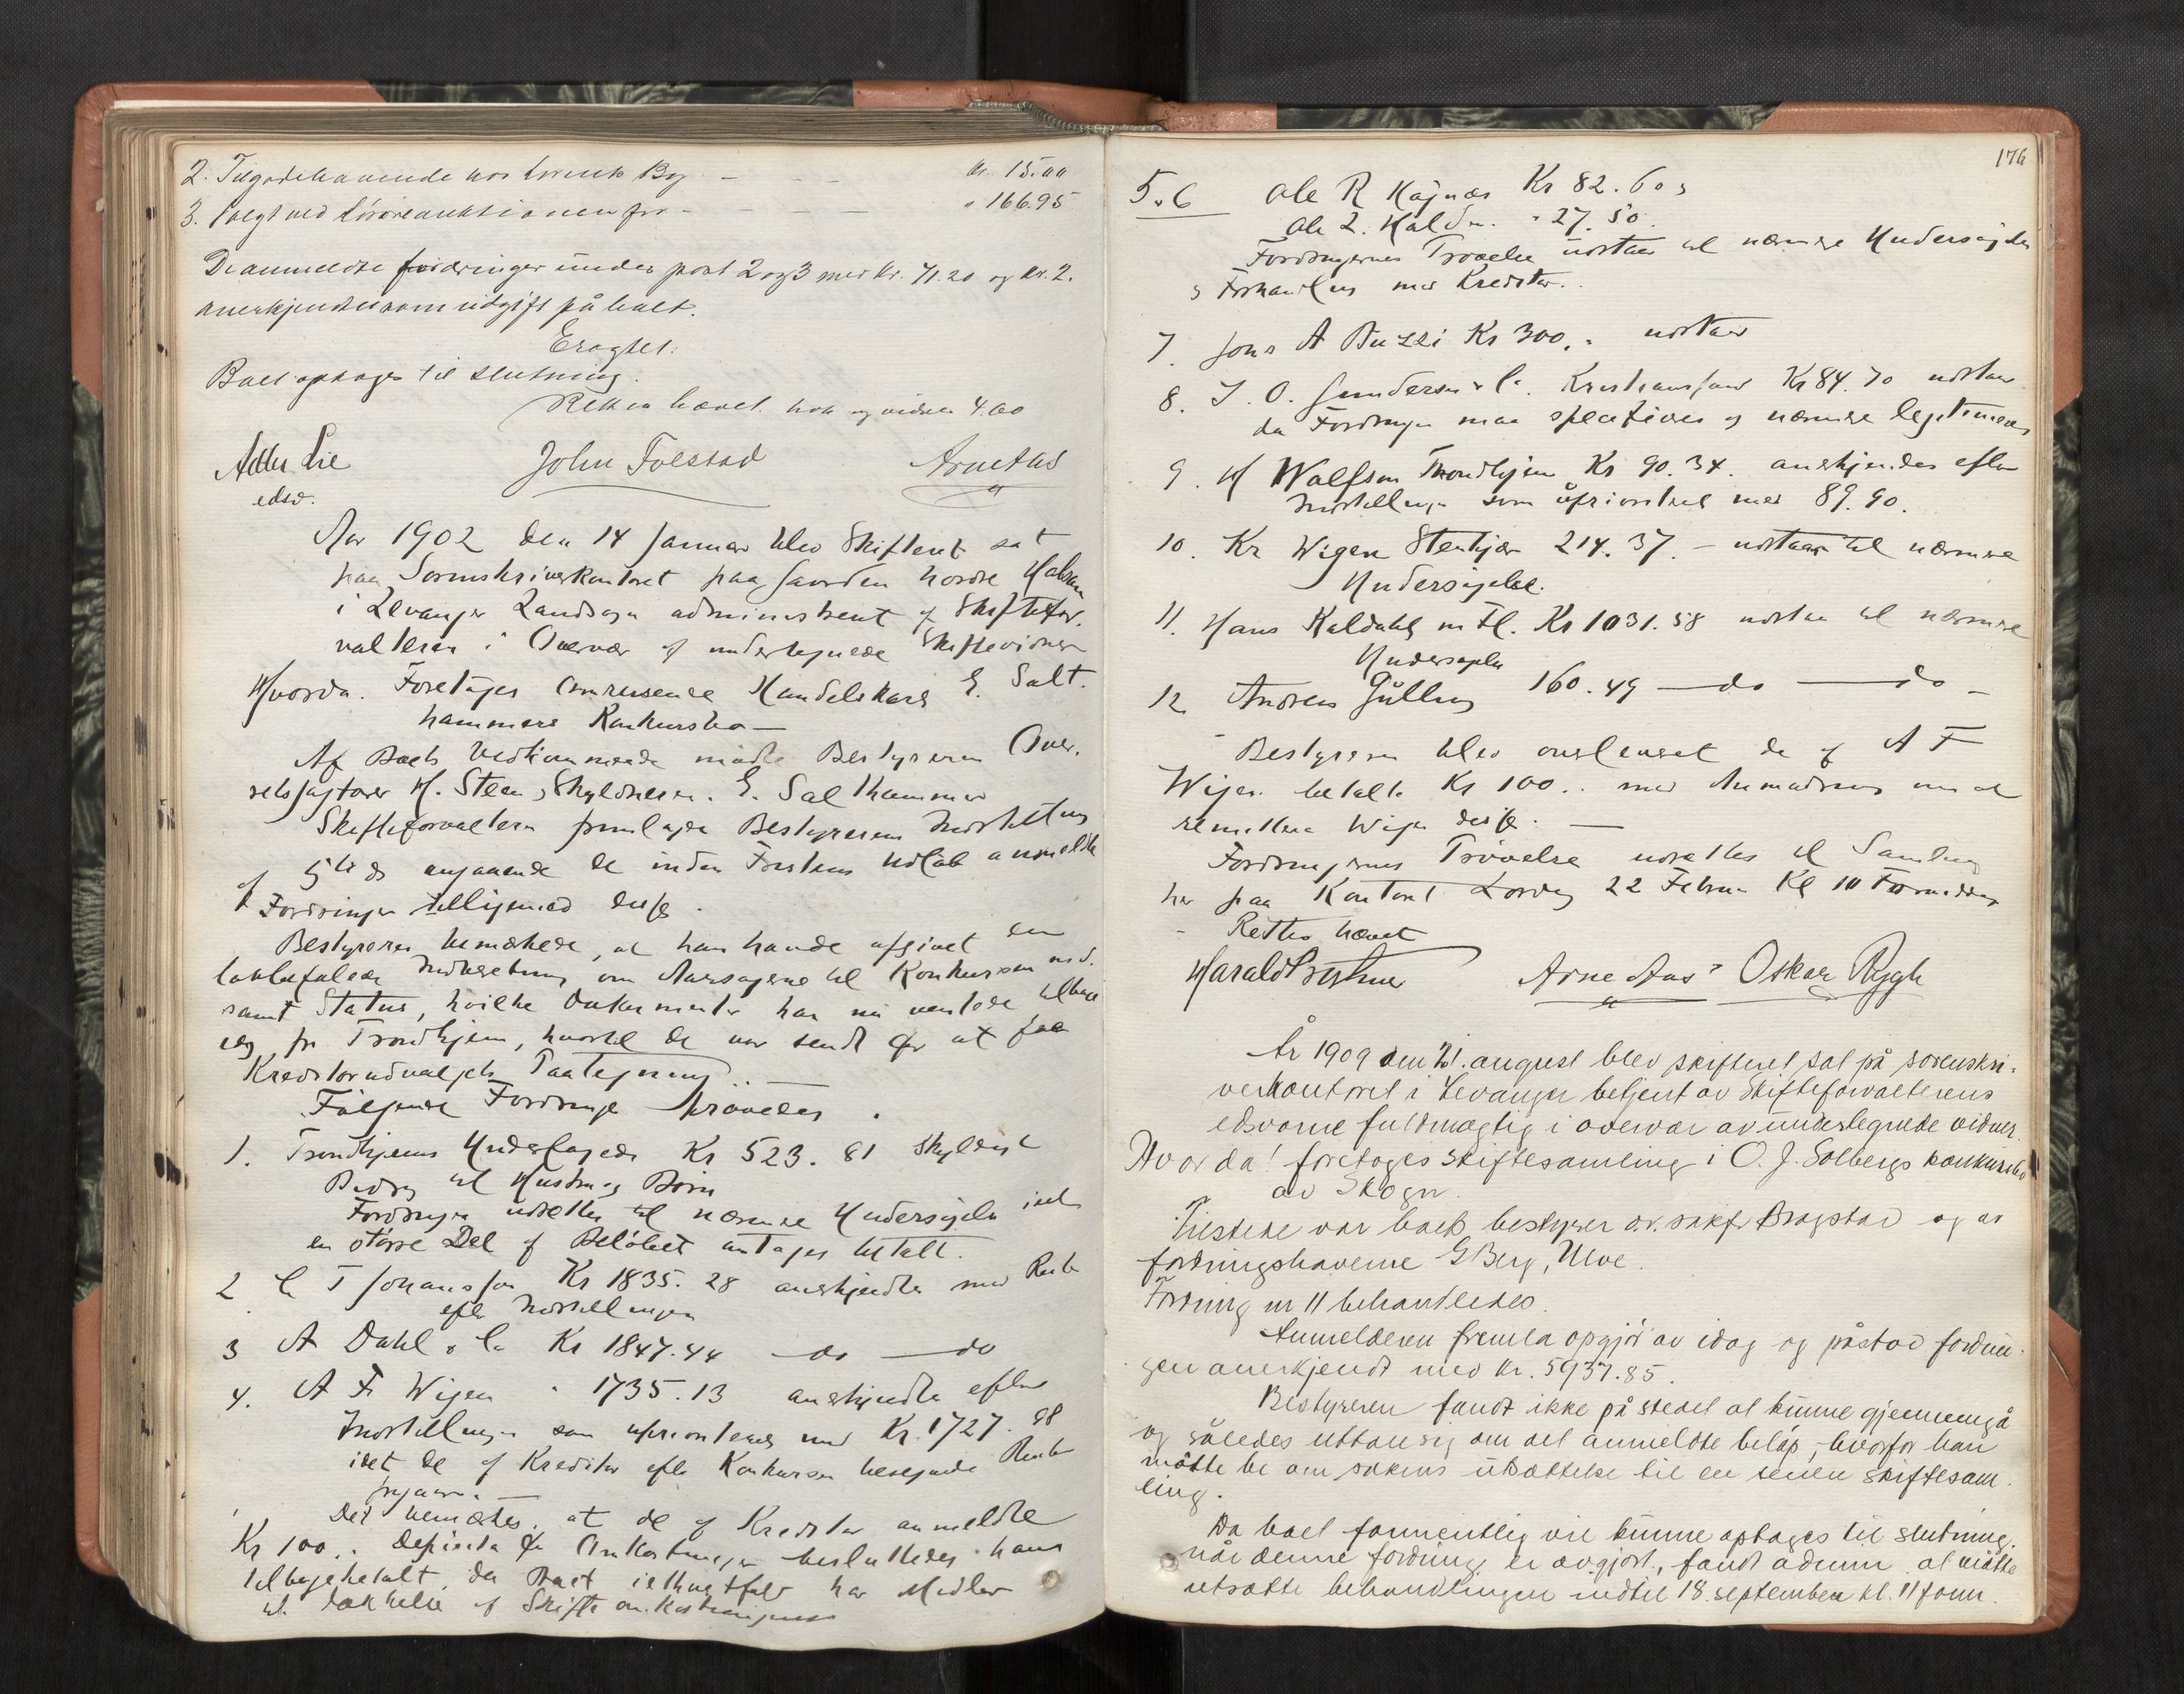 2. Tilgodehavende hos Lorents Bog - - - kr. 15.00
3. Solgt ved Løsøreauktionen for - - - - " 166.95
De anmeldte fordringer under post 2 og 3 med kr. 71.20 og kr. 2.
anerkjendtes som udgift på boet.
Eragtet:
Boet optages til slutning.
Retten hævet. hver og vidner 4.00
Adler Lie John Folstad Arne Aas
edsv.
Aar 1902 den 14 Januar blev Skifteret sat
paa Sorenskriverkontoret paa Gaarden nordre
i Levanger Landsogn administreret af Skiftefor-
valteren i Overvær af undertegnede Skiftevidner
Hvorda. Foretages Omreisende Handelskarl E. Salt-
hammers Konkursbo —
Af Boets Vedkommende mødte Bestyreren Over-
retssagfører H. Steen, Skyldneren E. Salthammer
Skifteforvalteren fremlagde Bestyrerens Indstilling
af 5te ds angaaende de inden Fristens Udløb anmeldte
Fordringer tilligemed disse.
Bestyreren bemærkede, at han havde afgivet den
lovbefalede Indberetning om Aarsagerne til Konkursen med-
samt Status, hvilke Dokumenter han nu ventede tilbage
fra Trondhjem, hvortil de var sendt for at faa
Kreditorudvalgets Paategning. —
Følgende Fordringer prøvedes.
1. Trondhjems Kr 523. 81 skyldigt
Bidrag til Hustru og Børn
Fordringen udsættes til nærmere Undersøgelse idet
en større Del af Beløbet antages betalt.
2 C T Johanssen Kr 1835. 28 anerkjendtes med Rente
efter Indstillingen
3 A Dahl & Co Kr 1847.44 — do — do
4. A F. Wigen " 1735.13 anerkjendtes efter
Indstillingen som uprioriteret med Kr. 1727. 98
idet de af Kreditor efter Konkursen beregnede Renter
fragaar. —
Det bemærkes, at de af Kreditor anmeldte
Kr 100.. Depositum for Omkostninger besluttedes ham
tilbagebetalt, da Boet ialfald har Midler
til Dækkelse af Skifteomkostningerne
176
5 & 6 Ole R Højnæs Kr 82. 60
Ole 2. " 27. 50.
Fordringernes Prøvelse udstaar til nærmere Undersøgelse
& Forhandling med Kreditor.
7. Jons A Buzzi Kr 300.. udstaar
8. J. O. Gundersen & Co. Kristiansund Kr 84. 70 udstaar
da Fordringen maa specificeres og nærmere legitimeres
9. H Wolfson Trondhjem Kr 90. 34. anerkjendes efter
Indstillingen som uprioriteret med 89. 90.
10. Kr Wigen Stenkjær 214. 37. - udstaar til nærmere
Undersøgelse.
11. Hans Kaldahl m fl. Kr 1031. 58 udstaar til nærmere
Undersøgelse
12 Andreas Gulling 160. 49 — do — do —
Bestyreren blev overleveret de af A F
Wigen betalte Kr 100.. med Anmodning om at
remittere Wigen disse. —
Fordringernes Prøvelse udsættes til Samling
her paa Kontoret Lørdag 22 Februar Kl 10 Formiddag
- Retten hævet
Harald Arne Aas Oskar Rygh
År 1909 den 21. august blev skifteret sat på sorenskri-
verkontoret i Levanger betjent av Skifteforvalterens
edsvorne fuldmægtig i overvær av undertegnede vidner.
Hvorda! foretoges skiftesamling i O. J. Solbergs konkursbo
av Skogn.
Tilstede var boets bestyrer o.r. sakf. Bragstad og av
fordringshaverne G Berg, Ulve.
Fordring nr 11 behandledes.
Anmelderen fremla opgjør av idag og påstod fordrin-
gen anerkjendt med kr. 5937.85.
Bestyreren fandt ikke på stedet at kunne gjennemgå
og således uttale sig om det anmeldte beløp, hvorfor han
måtte be om sakens utsættelse til en senere skiftesam-
ling.
Da boet formentlig vil kunne optages til slutning,
når denne fordring er avgjort, fandt adm at måtte
utsætte behandlingen indtil 18. september kl. 11 form.